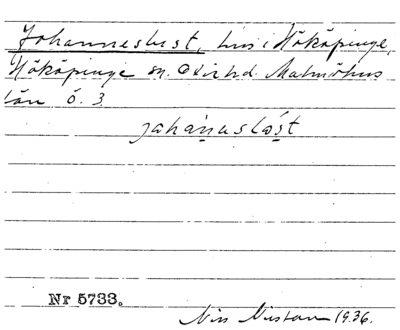 Johanneslust, hus i Hököpinge,
Hököpinge sn. Oxie hd. Malmöhus
län ö. 3
johan̤uslös̤t
Nr 5733.
Nils 1936.